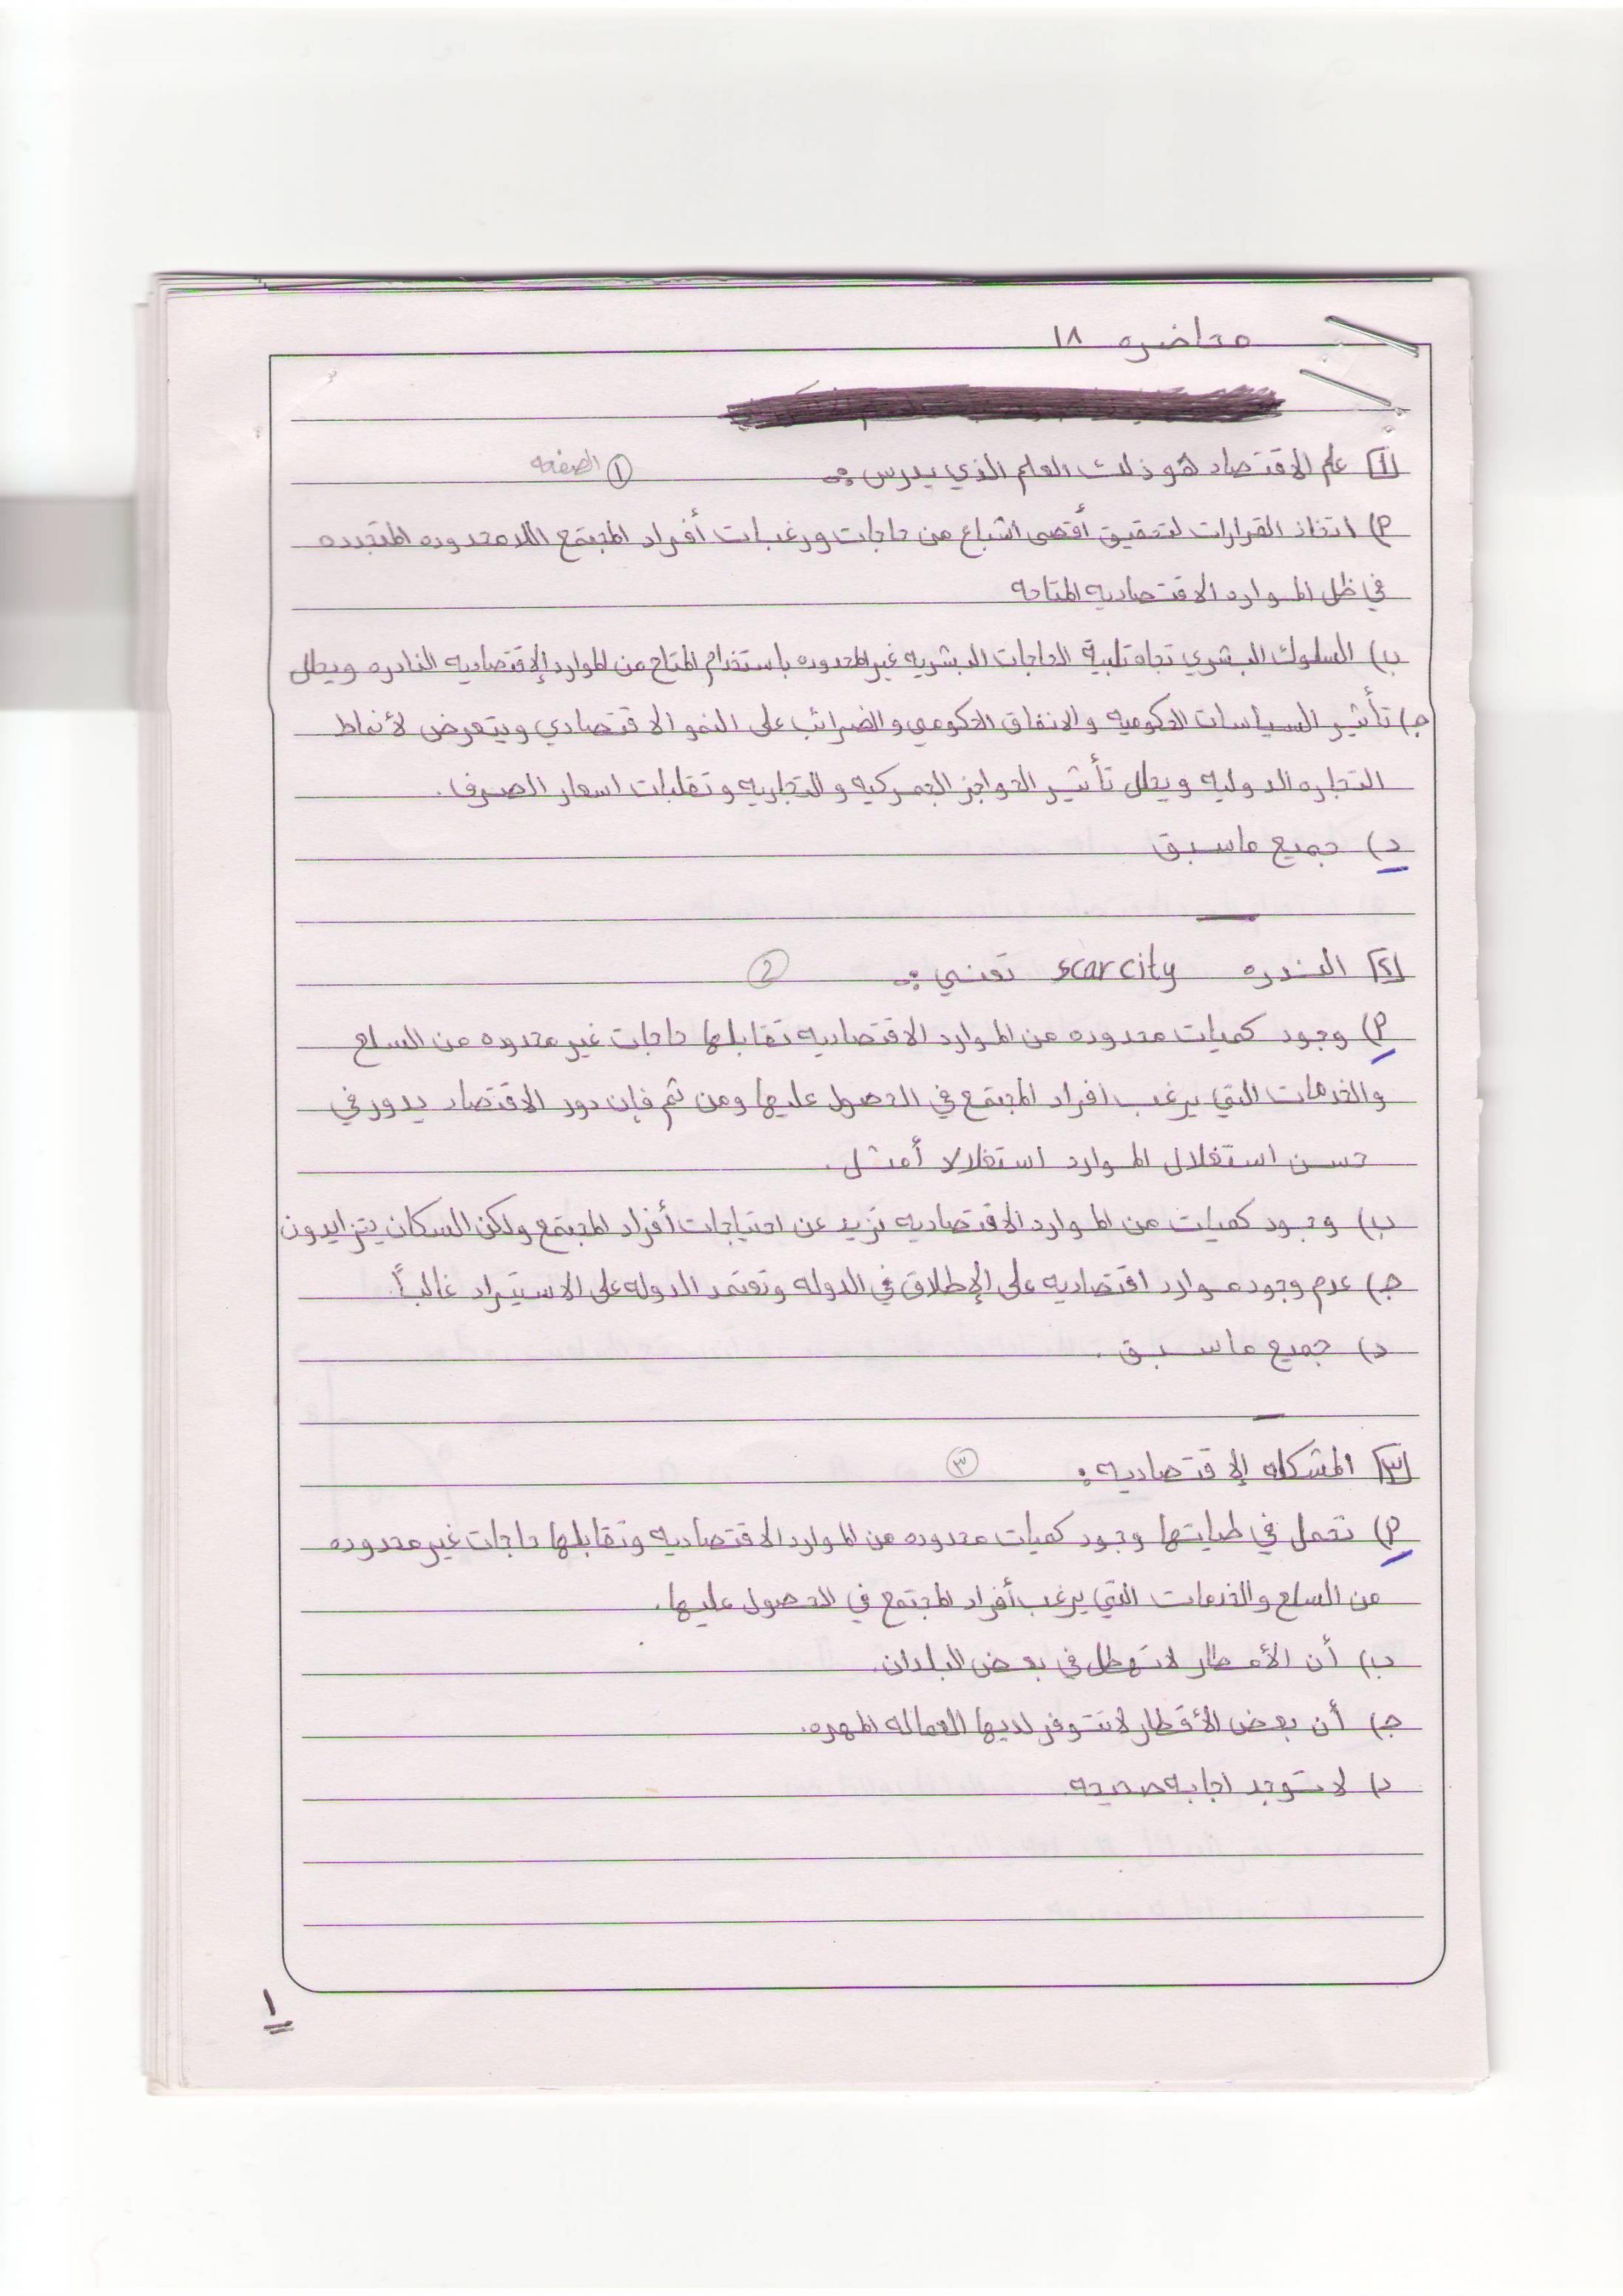 محاضره ١٨
[١] علم الاقتصاد هو ذلك العلم الذي يدرس : ① الصفحه
أ) اتخاذ القرارات لتحقيق أقصى اشباع من حاجات ورغبات أفراد المجتمع اللامحدوده المتجدده
في ظل الموارد الاقتصاديه المتاحه
ب) السلوك البشري تجاه تلبية الحاجات البشريه غير المحدوده باستخدام المتاح من الموارد الإقتصاديه النادره ويحلل
ج) تأثير السياسات الحكوميه والانفاق الحكومي والضرائب على النمو الاقتصادي ويتعرض لأنماط
التجاره الدوليه ويحلل تأثير الحواجز الجمركيه والتجاريه وتقلبات اسعار الصرف.
د) جميع ماسبق
[٢] الندره scarcity تعني : ②
أ) وجود كميات محدوده من الموارد الاقتصاديه تقابلها حاجات غير محدوده من السلع
والخدمات التي يرغب افراد المجتمع في الحصول عليها ومن ثم فإن دور الاقتصاد يدور في
حسن استغلال الموارد استغلالا أمثل.
ب) وجود كميات من الموارد الاقتصاديه تزيد عن احتياجات أفراد المجتمع ولكن السكان يتزايدون
ج) عدم وجود موارد اقتصاديه على الإطلاق في الدوله وتعتمد الدوله على الاستيراد غالباً.
د) جميع ماسبق.
[٣] المشكله الإقتصاديه : ③
أ) تحمل في طياتها وجود كميات محدوده من الموارد الاقتصاديه وتقابلها حاجات غير محدوده
من السلع والخدمات التي يرغب أفراد المجتمع في الحصول عليها.
ب) أن الأمطار لاتهطل في بعض البلدان.
ج) أن بعض الأقطار لاتتوفر لديها العماله المهره.
د) لاتوجد اجابه صحيحه.
١